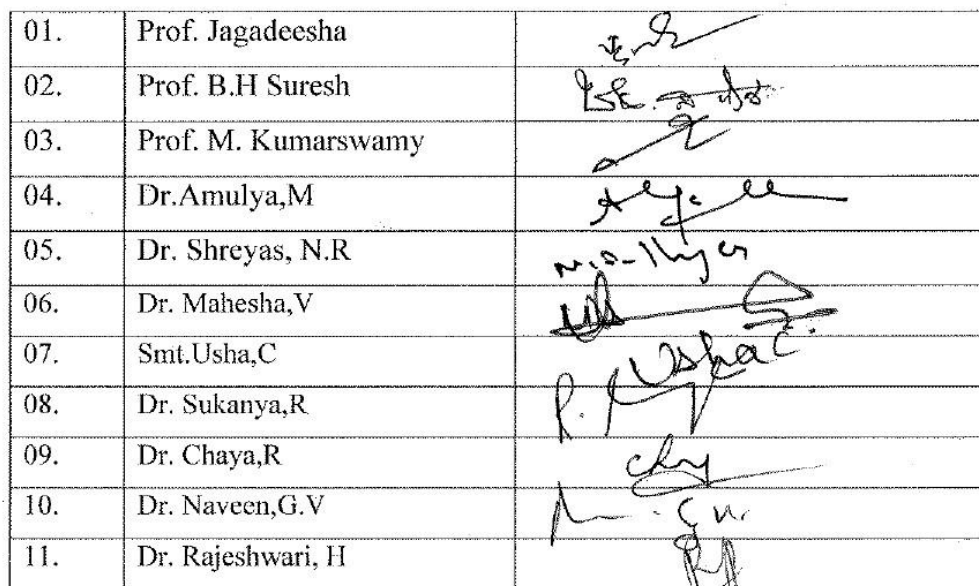 01. Prof. Jagadeesha
02. Prof. B.H Suresh
03. Prof. M. Kumarswamy
04. Dr.Amulya,M
05. Dr. Shreyas, N.R
06. Dr. Mahesha,V
07. Smt.Usha,C Usha C.
08. Dr. Sukanya,R
09. Dr. Chaya,R
10. Dr. Naveen,G.V
11. Dr. Rajeshwari, H